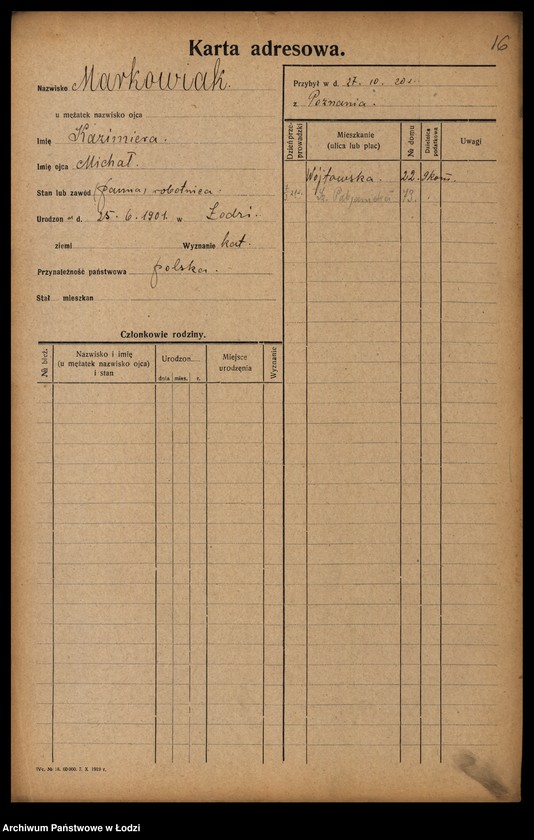 16
Karta adresowa.
Nazwisko Markowiak.
u mężatek nazwisko ojca
Imię Kazimiera.
Imię ojca Michał.
Stan lub zawód (panna) robotnica.
Urodzon w d. 25. 6. 1901. w Łodzi.
ziemi Wyznanie kat.
Przynależność państwowa polska.
Stał. mieszkan
Członkowie rodziny.
№ bież. Nazwisko i imię (u mężatek nazwisko ojca) i stan Urodzon dnia mies. r. Miejsce urodzenia Wyznanie
Przybył w d. 27. 10. 20 r.
z Poznania.
Dzień przeprowadzki Mieszkanie (ulica lub plac) № domu Dzielnica podatkowa Uwagi
Wójtowska. 22. 9 kom.
Pabjanicka 73.
Archiwum Państwowe w Łodzi